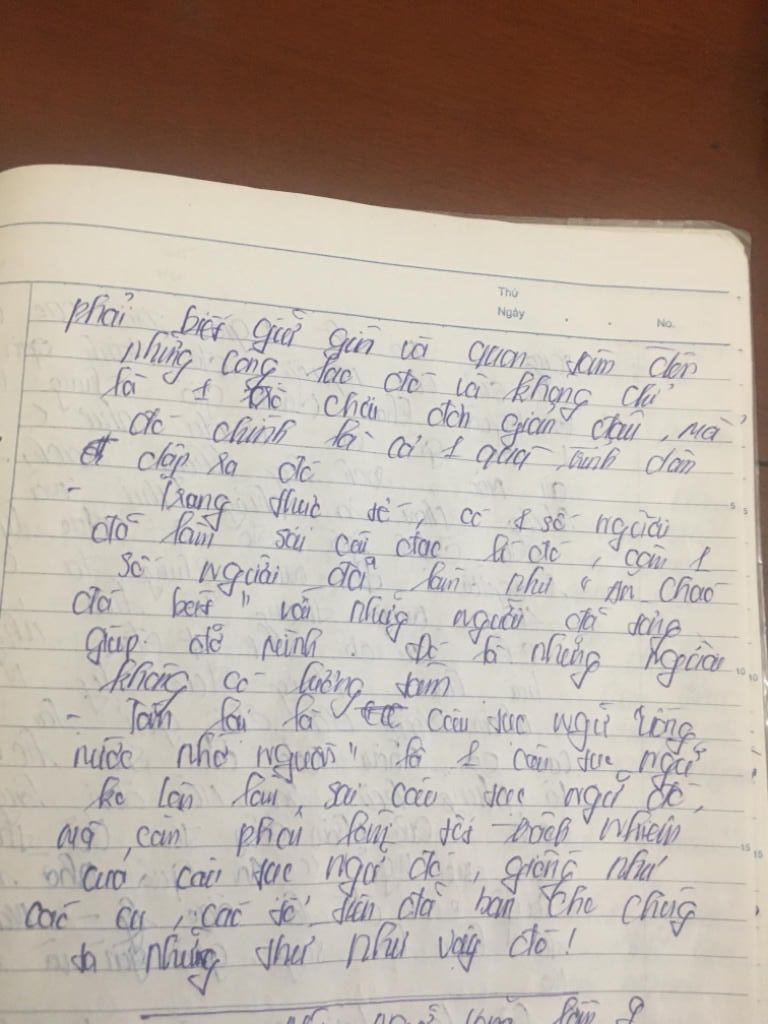 Thứ
Ngày
No.
phải biết giữ gìn và quan tâm đến
những công lao đó và không chỉ
là 1 chơi đơn giản đâu, mà
đó chính là cả 1 quá trình dần
đắp ra đó
- Trong thực tế, có 1 số người
đã làm sai cái đạo lí đó, còn 1
số người đã làm như "Ăn cháo
đá bát" với những người đã từng
giúp đỡ mình. Đó là những người
không có lương tâm
- Tóm lại là câu tục ngữ "Uống
nước nhớ nguồn" là 1 câu tục ngữ
sai câu tục ngữ đó,
mà cần phải làm tốt trách nhiệm
của câu tục ngữ đó, giống như
các cụ, các tổ tiên đã ban cho chúng
ta những thứ như vậy đó!
5
10 10
15 15